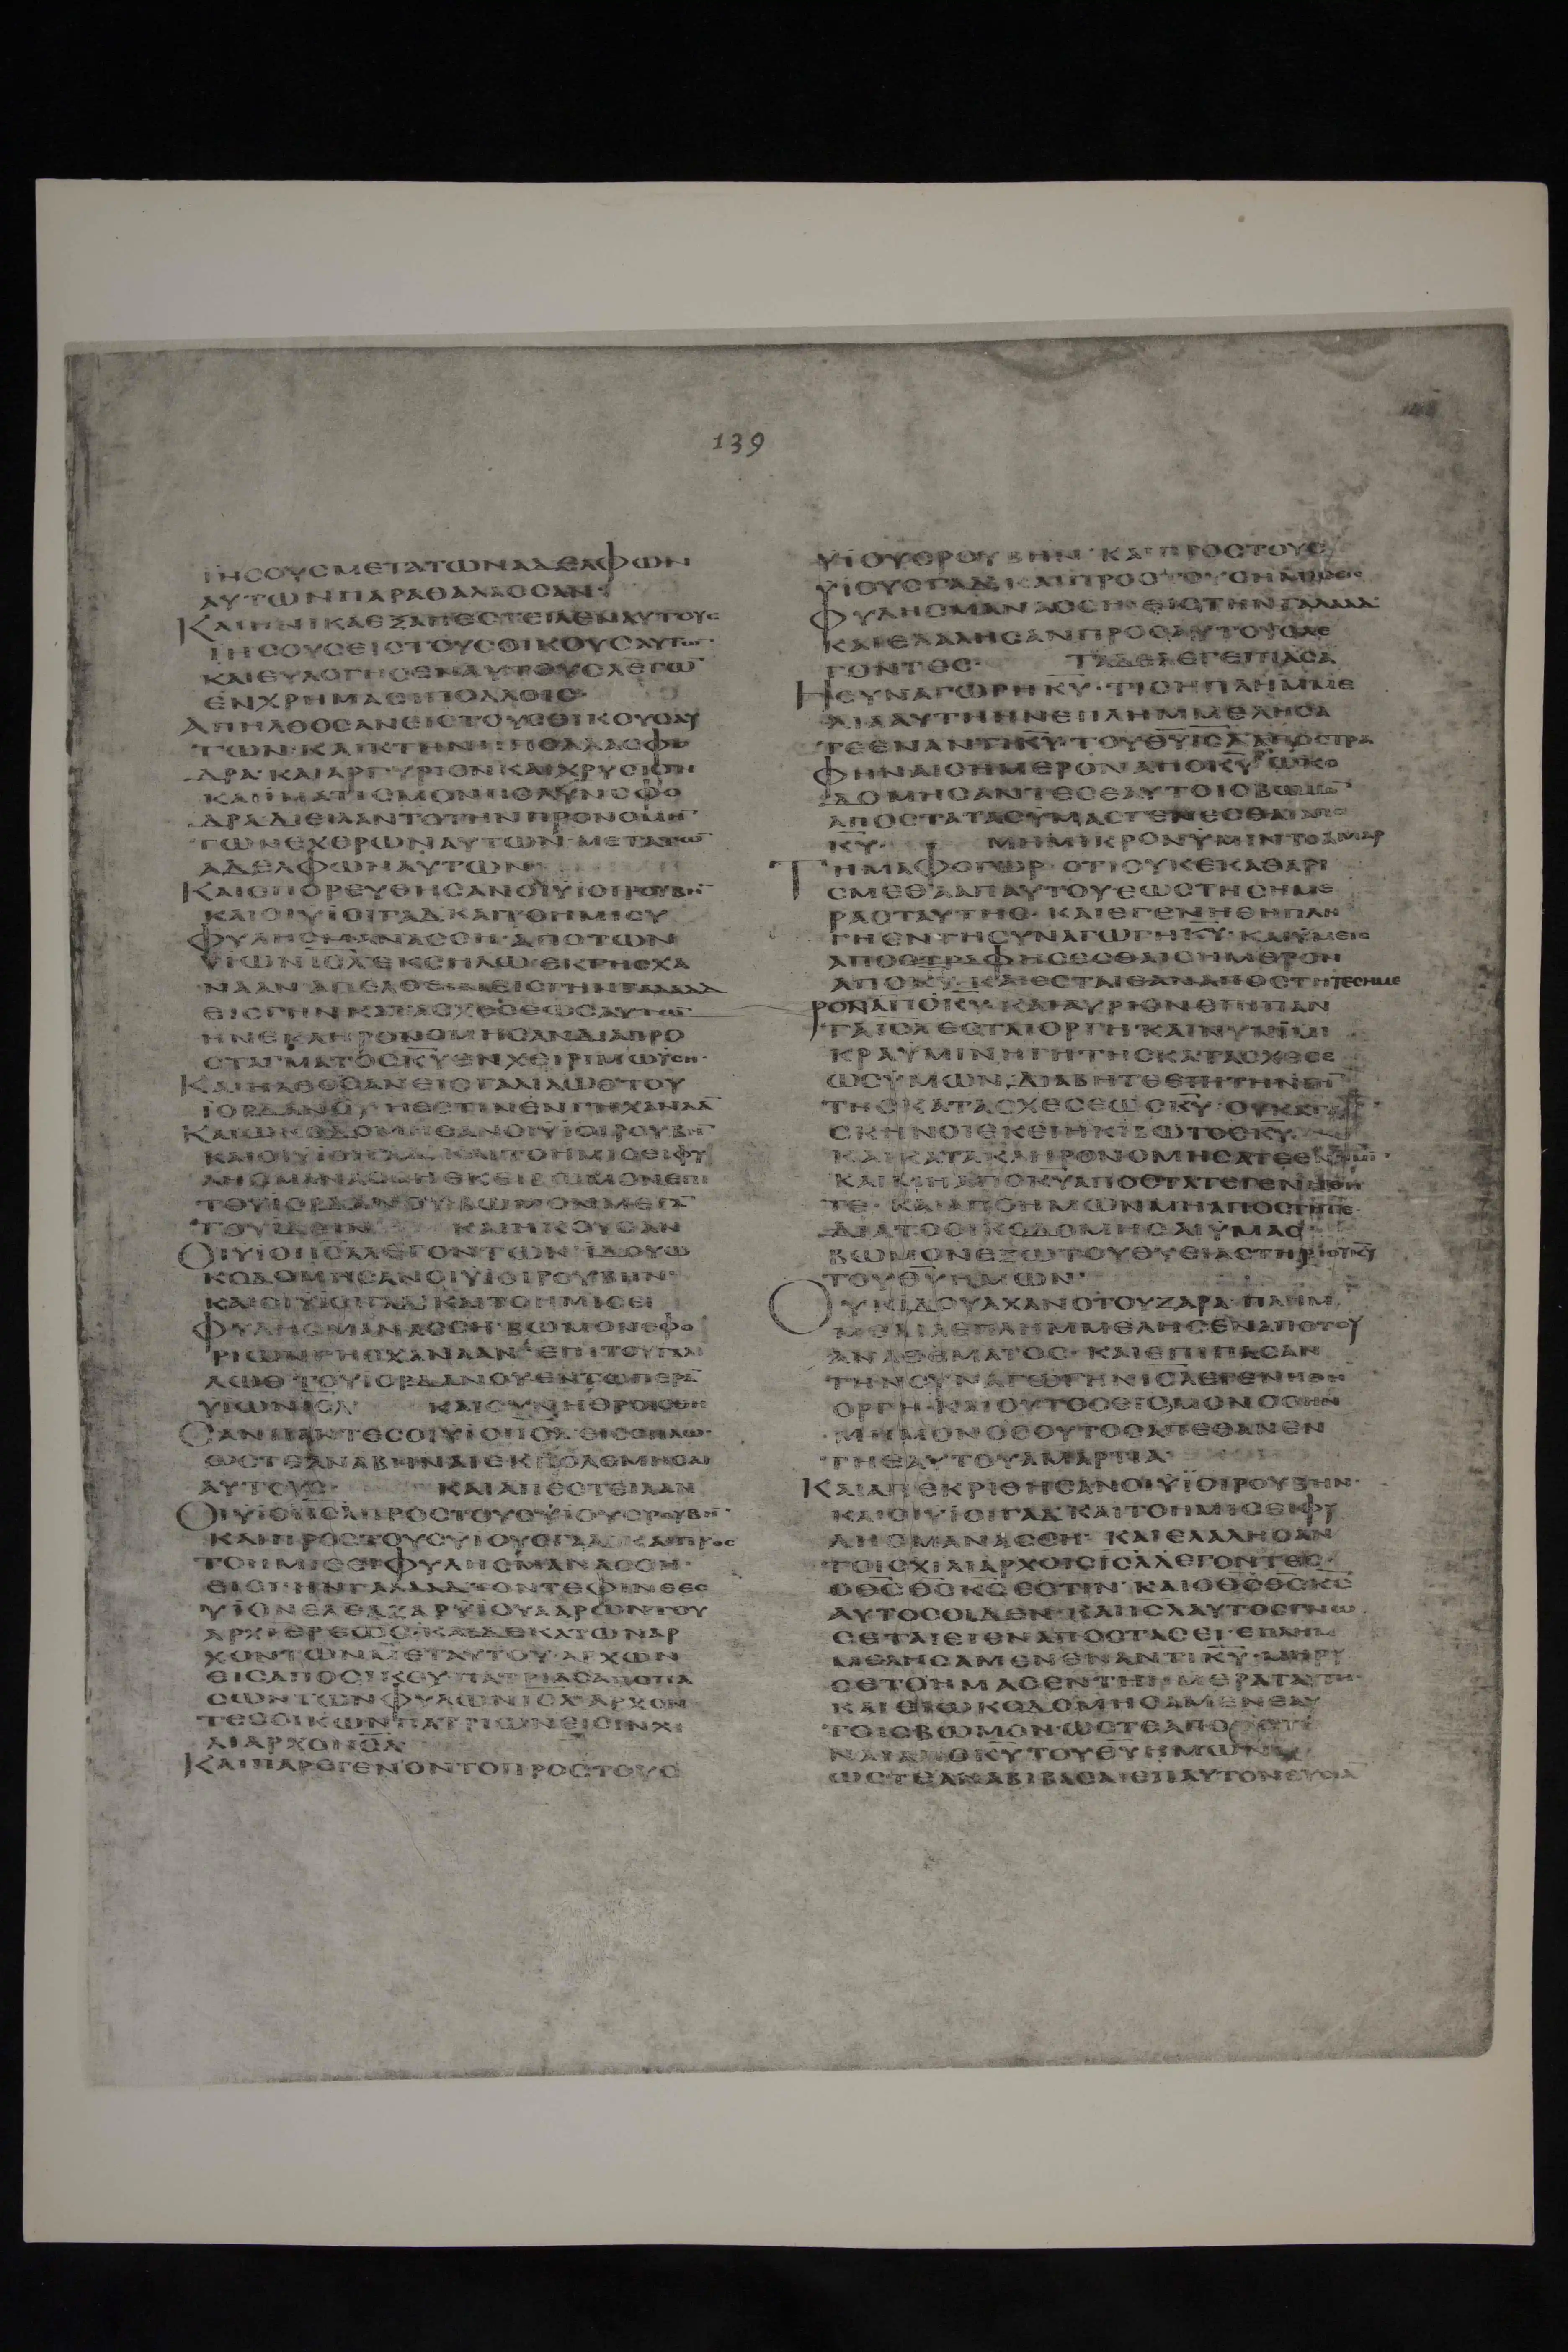 139
ΙΗΣΟΥΣΜΕΤΑΤΩΝΑΔΕΛΦΩΝ
ΑΥΤΩΝΠΑΡΑΘΑΛΑΣΣΑΝ·
ΚΑΙΗΝΙΚΑΕΞΑΠΕΣΤΕΙΛΕΝΑΥΤΟΥΣ
ΙΗΣΟΥΣΕΙΣΤΟΥΣΟΙΚΟΥΣΑΥΤΩ̅·
ΚΑΙΕΥΛΟΓΗΣΕΝΑΥΤΟΥΣΛΕΓΩ̅
ΕΝΧΡΗΜΑΣΙΠΟΛΛΟΙΣ·
ΑΠΗΛΘΟΣΑΝΕΙΣΤΟΥΣΟΙΚΟΥΣΑΥ
ΤΩΝ·ΚΑΙΚΤΗΝΗΠΟΛΛΑΣΦΟ
ΔΡΑ·ΚΑΙΑΡΓΥΡΙΟΝΚΑΙΧΡΥΣΙΟΝ
ΚΑΙΪΜΑΤΙΣΜΟΝΠΟΛΥΝΣΦΟ
ΔΡΑΔΙΕΙΛΑΝΤΟΤΗΝΠΡΟΝΟΜΗ̅
ΤΩΝΕΧΘΡΩΝΑΥΤΩΝ·ΜΕΤΑΤΩ̅
ΑΔΕΛΦΩΝΑΥΤΩΝ
ΚΑΙΕΠΟΡΕΥΘΗΣΑΝΟΙΫΙΟΙΡΟΥΒΗ̅
ΚΑΙΟΙΫΙΟΙΓΑΔΚΑΙΤΟΗΜΙΣΥ
ΦΥΛΗΣΜΑΝΑΣΣΗ·ΑΠΟΤΩΝ
ΥΙΩΝΙΣ̅Λ̅ΕΚΣΗΛΩ·ΕΚΓΗΣΧΑ
ΝΑΑΝΑΠΕΛΘΕΙΝΕΙΣΓΗΝΓΑΛΑΑΔ
ΕΙΣΓΗΝΚΑΤΑΣΧΕΣΕΩΣΑΥΤΩ̅
ΗΝΕΚΛΗΡΟΝΟΜΗΣΑΝΔΙΑΠΡΟ
ΣΤΑΓΜΑΤΟΣΚ̅Υ̅ΕΝΧΕΙΡΙΜΩΫΣΗ·
ΚΑΙΗΛΘΟΣΑΝΕΙΣΓΑΛΙΛΩΘΤΟΥ
ΙΟΡΔΑΝΟΥΗΕΣΤΙΝΕΝΓΗΧΑΝΑΑ̅
ΚΑΙΩΚΟΔΟΜΗΣΑΝΟΙΫΙΟΙΡΟΥΒΗ̅
ΚΑΙΟΙΫΙΟΙΓΑΔΚΑΙΤΟΗΜΙΣΕΙΦΥ
ΛΗΣΜΑΝΑΣΣΗΕΚΕΙΒΩΜΟΝΕΠΙ
ΤΟΥΙΟΡΔΑΝΟΥΒΩΜΟΝΜΕΓΑ̅
ΤΟΥΙΔΕΙΝ ΚΑΙΗΚΟΥΣΑΝ
ΟΙΫΙΟΙΙΣ̅Λ̅ΛΕΓΟΝΤΩΝΙΔΟΥΩ
ΚΟΔΟΜΗΣΑΝΟΙΫΙΟΙΡΟΥΒΗΝ·
ΚΑΙΟΙΫΙΟΙΓΑΔΚΑΙΤΟΗΜΙΣΕΙ
ΦΥΛΗΣΜΑΝΑΣΣΗ·ΒΩΜΟΝΕΦΟ
ΡΙΩΝΓΗΣΧΑΝΑΑΝ·ΕΠΙΤΟΥΓΑΛΙ
ΛΩΘΤΟΥΙΟΡΔΑΝΟΥΕΝΤΩΠΕΡΑ̅
ΥΙΩΝΙΣ̅Λ̅ ΚΑΙΣΥΝΗΘΡΟΙΣΘΗ
ΣΑΝΠΑΝΤΕΣΟΙΫΙΟΙΙΣ̅Λ̅ΕΙΣΣΗΛΩ·
ΩΣΤΕΑΝΑΒΗΝΑΙΕΚΠΟΛΕΜΗΣΑΙ
ΑΥΤΟΥΣ· ΚΑΙΑΠΕΣΤΕΙΛΑΝ
ΟΙΫΙΟΙΙΣ̅Λ̅ΠΡΟΣΤΟΥΣΫΙΟΥΣΡΟΥΒΗ̅·
ΚΑΙΠΡΟΣΤΟΥΣΥΙΟΥΣΓΑΔΚΑΙΠΡΟΣ
ΤΟΗΜΙΣΕΙΦΥΛΗΣΜΑΝΑΣΣΗ·
ΕΙΣΓΗΝΓΑΛΑΑΔΤΟΝΤΕΦΙΝΕΕΣ
ΥΙΟΝΕΛΕΑΖΑΡΥΙΟΥΑΑΡΩΝΤΟΥ
ΑΡΧΙΕΡΕΩΣ·ΚΑΙΔΕΚΑΤΩΝΑΡ
ΧΟΝΤΩΝΜΕΤΑΥΤΟΥ·ΑΡΧΩΝ
ΕΙΣΑΠΟΟΙΚΟΥΠΑΤΡΙΑΣΑΠΟΠΑ
ΣΩΝΤΩΝΦΥΛΩΝΙΣ̅Λ̅ΑΡΧΟΝ
ΤΕΣΟΙΚΩΝΠΑΤΡΙΩΝΕΙΣΙΝΧΙ
ΛΙΑΡΧΟΙΙΣ̅Λ̅
ΚΑΙΠΑΡΕΓΕΝΟΝΤΟΠΡΟΣΤΟΥΣ
ΥΙΟΥΣΡΟΥΒΗΝ·ΚΑΙΠΡΟΣΤΟΥΣ
ΥΙΟΥΣΓΑΔΚΑΙΠΡΟΣΤΟΥΣΗΜΙΣΕΙΣ
ΦΥΛΗΣΜΑΝΑΣΣΗ·ΕΙΣΤΗΝΓΑΛΑΑΔ·
ΚΑΙΕΛΑΛΗΣΑΝΠΡΟΣΑΥΤΟΥΣΛΕ
ΓΟΝΤΕΣ· ΤΑΔΕΛΕΓΕΙΠΑΣΑ
ΗΣΥΝΑΓΩΓΗΚ̅Υ̅·ΤΙΣΗΠΛΗΜΜΕ
ΛΙΑΑΥΤΗΗΝΕΠΛΗΜΜΕΛΗΣΑ
ΤΕΕΝΑΝΤΙΚ̅Υ̅·ΤΟΥΘ̅Υ̅ΙΣ̅Λ̅ΑΠΟΣΤΡΑ
ΦΗΝΑΙΣΗΜΕΡΟΝΑΠΟΚ̅Υ̅ΩΚΟ
ΔΟΜΗΣΑΝΤΕΣΕΑΥΤΟΙΣΒΩΜΟ̅·
ΑΠΟΣΤΑΤΑΣΫΜΑΣΓΕΝΕΣΘΑΙΑΠΟ
Κ̅Υ̅· ΜΗΜΙΚΡΟΝΫΜΙΝΤΟΑΜΑΡ
ΤΗΜΑΦΟΓΩΡ·ΟΤΙΟΥΚΕΚΑΘΑΡΙ
ΣΜΕΘΑΑΠΑΥΤΟΥΕΩΣΤΗΣΗΜΕ
ΡΑΣΤΑΥΤΗΣ·ΚΑΙΕΓΕΝΗΘΗΠΛΗ
ΓΗΕΝΤΗΣΥΝΑΓΩΓΗΚ̅Υ̅·ΚΑΙΫΜΕΙΣ
ΑΠΟΣΤΡΑΦΗΣΕΣΘΑΙΣΗΜΕΡΟΝ
ΑΠΟΚ̅Υ̅·ΚΑΙΕΣΤΑΙΕΑΝΑΠΟΣΤΗΤΕΣΗΜΕ
ΡΟΝΑΠΟΚ̅Υ̅·ΚΑΙΑΥΡΙΟΝΕΠΙΠΑΝ
ΤΑΙΣ̅Λ̅ΕΣΤΑΙΟΡΓΗ·ΚΑΙΝΥΝΕΙΜΙ
ΚΡΑΫΜΙΝΗΓΗΤΗΣΚΑΤΑΣΧΕΣΕ
ΩΣΫΜΩΝ,ΔΙΑΒΗΤΕΕΠΙΤΗΝΓΗ̅
ΤΗΣΚΑΤΑΣΧΕΣΕΩΣΚ̅Υ̅·ΟΥΚΑΤΑ
ΣΚΗΝΟΙΕΚΕΙΗΚΙΒΩΤΟΣΚ̅Υ̅·
ΚΑΙΚΑΤΑΚΛΗΡΟΝΟΜΗΣΑΤΕΕΝΗΜΙ̅·
ΚΑΙΜΗΑΠΟΚ̅Υ̅ΑΠΟΣΤΑΤΕΓΕΝΗΘΗ
ΤΕ·ΚΑΙΑΠΟΗΜΩΝΜΗΑΠΟΣΤΗΤΕ·
ΔΙΑΤΟΟΙΚΟΔΟΜΗΣΑΙΫΜΑΣ
ΒΩΜΟΝΕΞΩΤΟΥΘΥΣΙΑΣΤΗΡΙΟΥΚ̅Υ̅
ΤΟΥΘ̅Υ̅ΗΜΩΝ·
ΟΥΚΙΔΟΥΑΧΑΝΟΤΟΥΖΑΡΑ·ΠΛΗΜ
ΜΕΛΙΑΕΠΛΗΜΜΕΛΗΣΕΝΑΠΟΤΟΥ
ΑΝΑΘΕΜΑΤΟΣ·ΚΑΙΕΠΙΠΑΣΑΝ
ΤΗΝΣΥΝΑΓΩΓΗΝΙΣ̅Λ̅ΕΓΕΝΗΘΗ
ΟΡΓΗ·ΚΑΙΟΥΤΟΣΕΙΣΜΟΝΟΣΗΝ
ΜΗΜΟΝΟΣΟΥΤΟΣΑΠΕΘΑΝΕΝ
ΤΗΕΑΥΤΟΥΑΜΑΡΤΙΑ·
ΚΑΙΑΠΕΚΡΙΘΗΣΑΝΟΙΫΙΟΙΡΟΥΒΗΝ·
ΚΑΙΟΙΫΙΟΙΓΑΔΚΑΙΤΟΗΜΙΣΕΙΦΥ
ΛΗΣΜΑΝΑΣΣΗ·ΚΑΙΕΛΑΛΗΣΑΝ
ΤΟΙΣΧΙΛΙΑΡΧΟΙΣΙΣ̅Λ̅ΛΕΓΟΝΤΕΣ·
ΟΘ̅Σ̅Θ̅Σ̅Κ̅Σ̅ΕΣΤΙΝ·ΚΑΙΟΘ̅Σ̅Θ̅Σ̅Κ̅Σ̅
ΑΥΤΟΣΟΙΔΕΝ·ΚΑΙΙΣ̅Λ̅ΑΥΤΟΣΓΝΩ
ΣΕΤΑΙΕΙΕΝΑΠΟΣΤΑΣΕΙ·ΕΠΛΗΜ
ΜΕΛΗΣΑΜΕΝΕΝΑΝΤΙΚ̅Υ̅·ΜΗΡΥ
ΣΕΤΟΗΜΑΣΕΝΤΗΗΜΕΡΑΤΑΥΤΗ·
ΚΑΙΕΙΩΚΟΔΟΜΗΣΑΜΕΝΕΑΥ
ΤΟΙΣΒΩΜΟΝ·ΩΣΤΕΑΠΟΣΤΗ
ΝΑΙΑΠΟΚ̅Υ̅ΤΟΥΘ̅Υ̅ΗΜΩΝ
ΩΣΤΕΑΝΑΒΙΒΑΣΑΙΕΠΑΥΤΟΝΘΥΣΙΑ̅